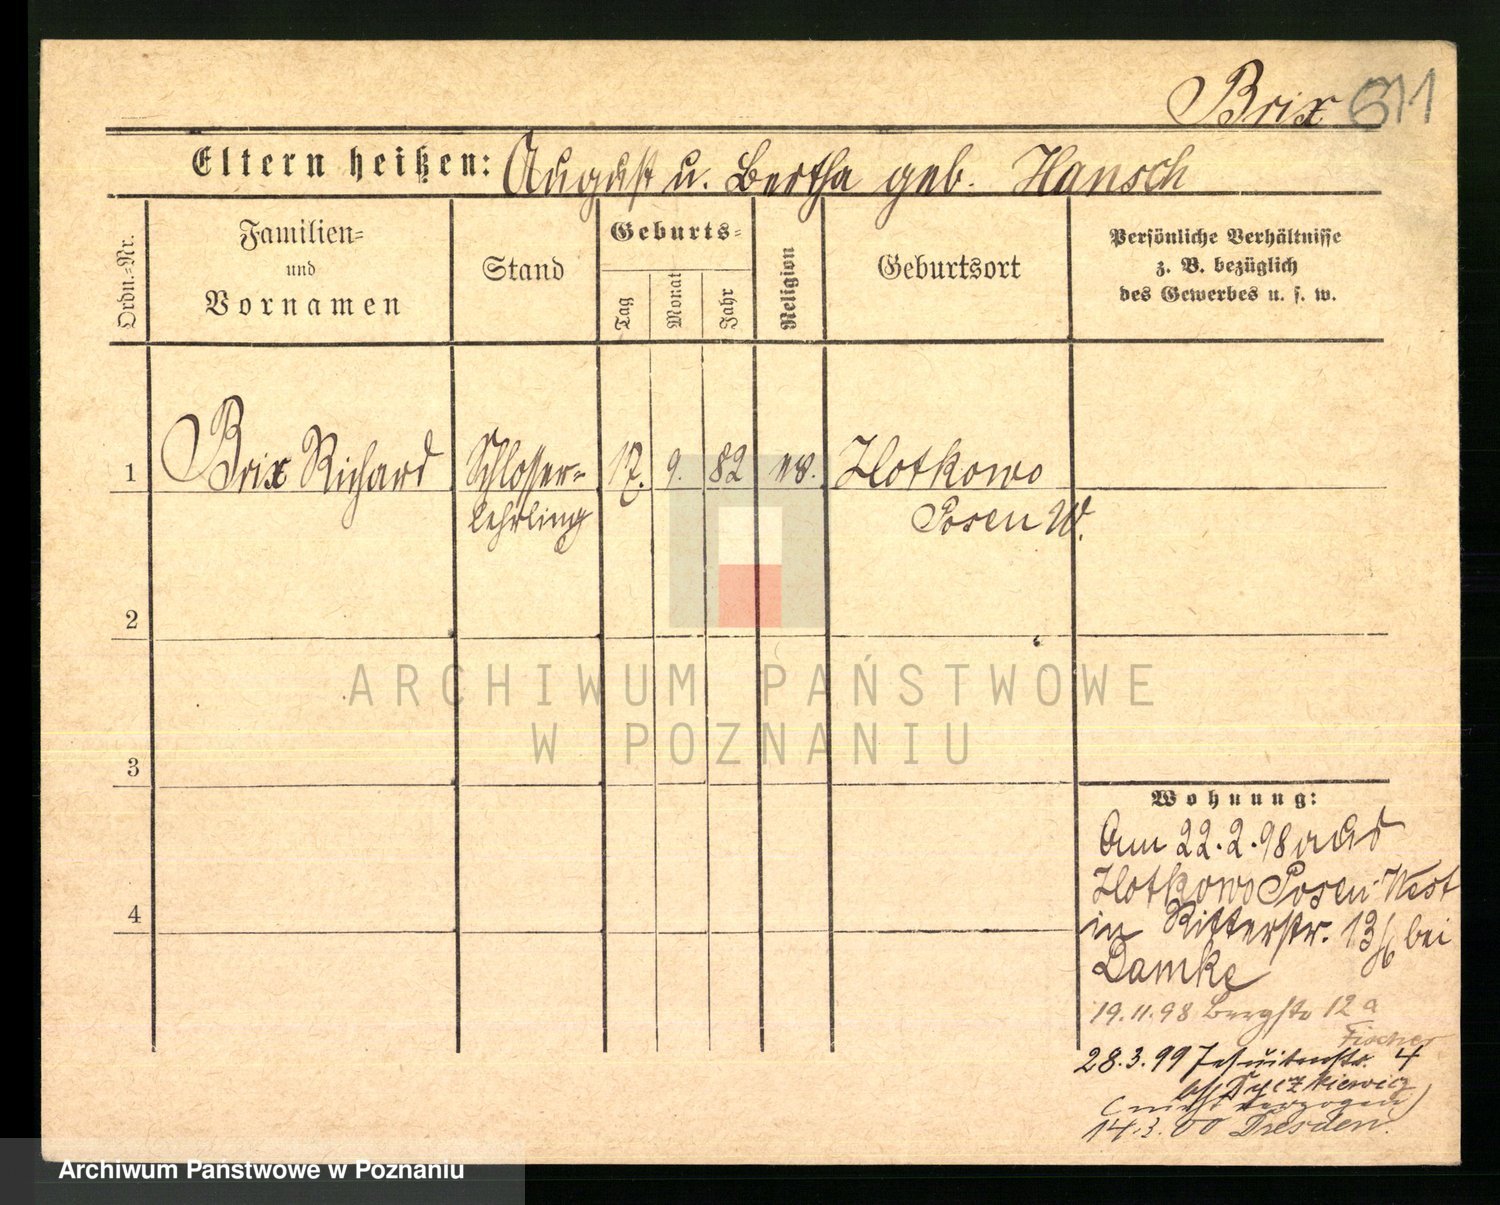 Brix 611
Eltern heißen: August u. Bertha geb. Hansch
Ordn.-Nr.
Familien-
und
Vornamen
Stand
Geburts-
Tag
Monat
Jahr
Religion
Geburtsort
Persönliche Verhältnisse
z. B. bezüglich
des Gewerbes u. s. w.
1 Brix Richard Schlosser- 17. 9. 82 ev. Zlotkowo
lehrling Posen W.
2
3
4
ARCHIWUM PAŃSTWOWE
W POZNANIU
Wohnung:
Am 22.2.98 aus
Zlotkowo Posen-West
in Ritterstr. 13/6 bei
Damke
19.11.98 Bergstr 12a
Fischer
28.3.99 Jesuitenstr. 4
(nicht verzogen)
14.3.00 Dresden.
Archiwum Państwowe w Poznaniu